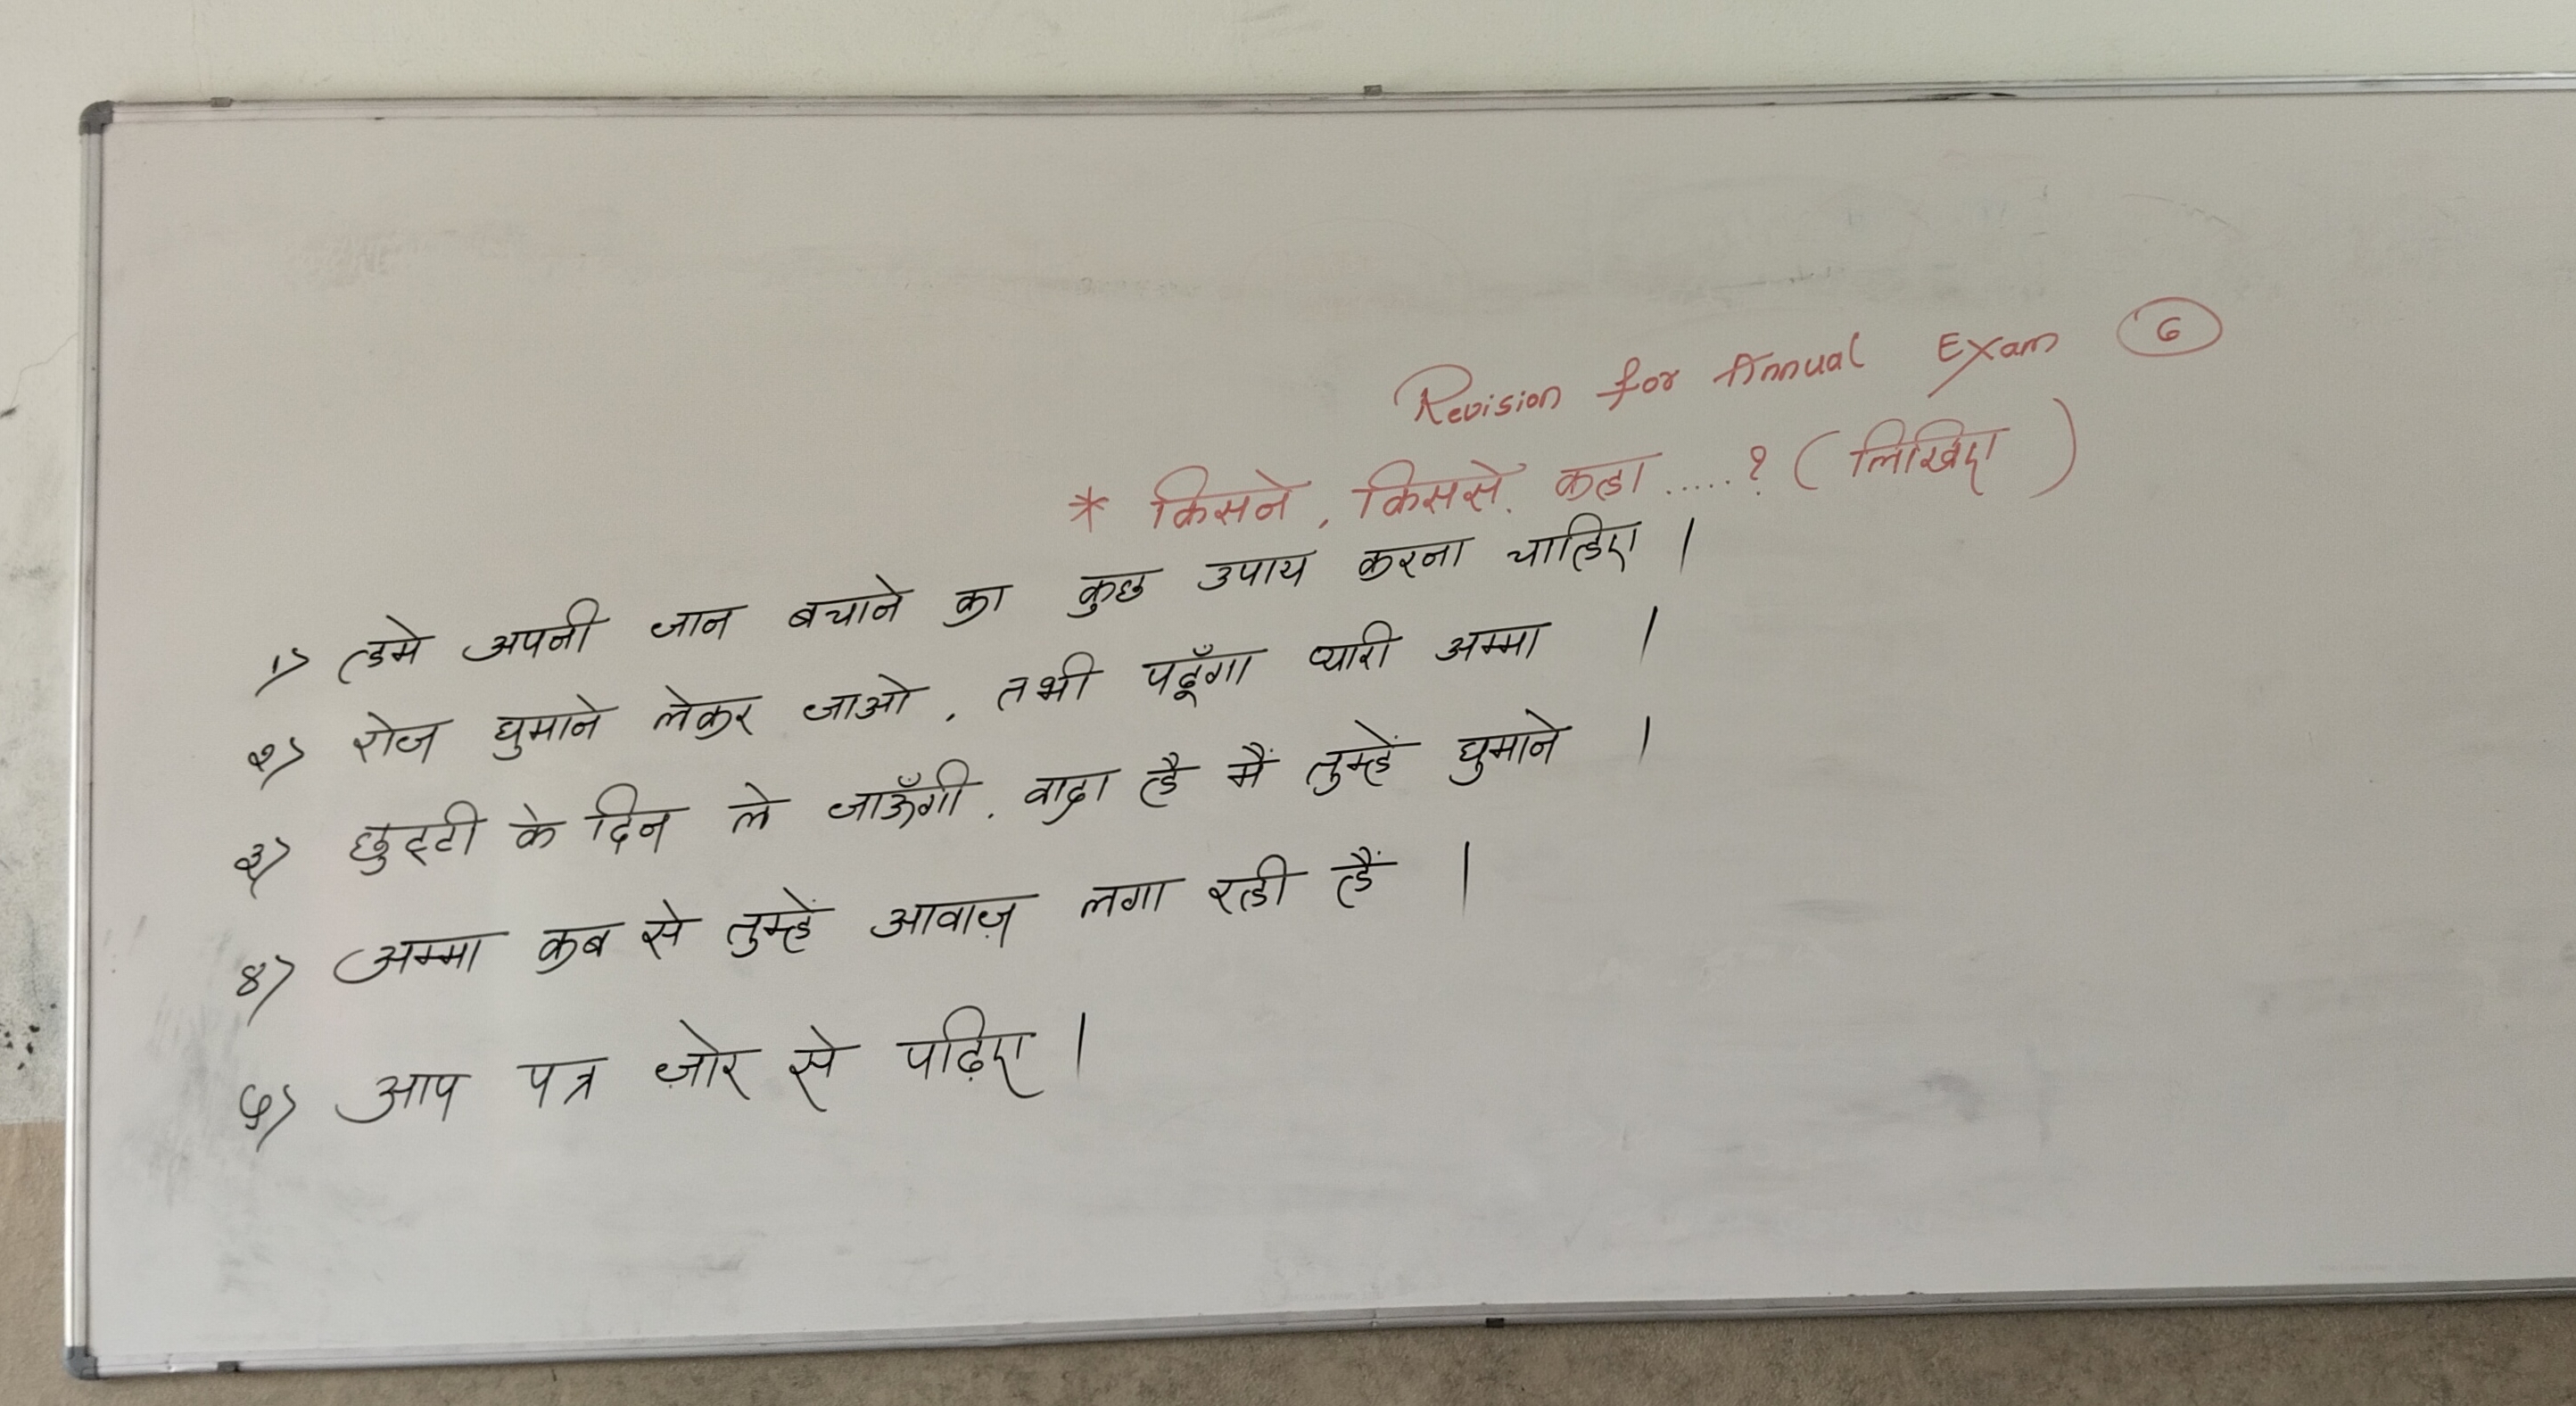 Revision for Annual Exam 6
* किसने, किससे कहा.....? (लिखिए)
1) हमे अपनी जान बचाने का कुछ उपाय करना चाहिए।
२) रोज घुमाने लेकर जाओ, तभी पढूँगा प्यारी अम्मा ।
३) छुट्टी के दिन ले जाऊँगी, वादा है मैं तुम्हें घुमाने ।
४) अम्मा कब से तुम्हें आवाज़ लगा रही हैं ।
५) आप पत्र ज़ोर से पढ़िए।